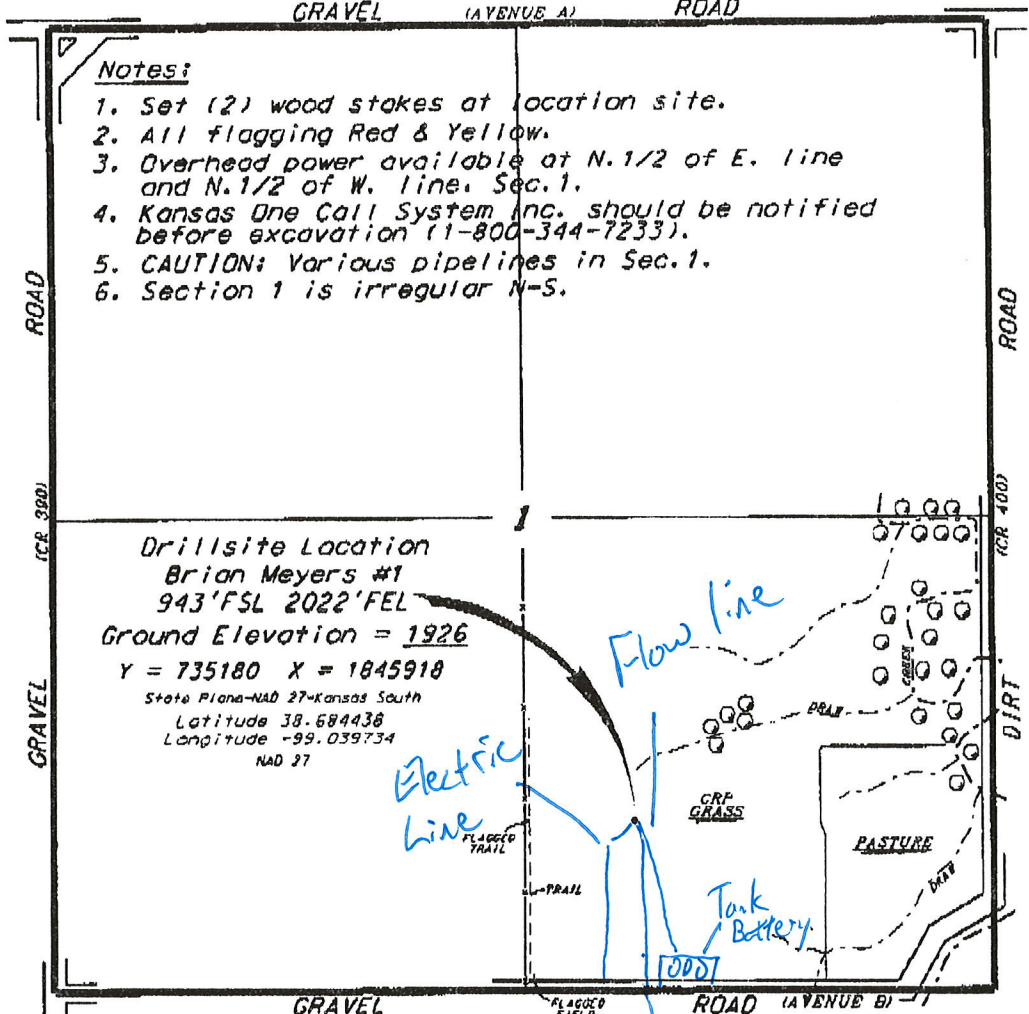 GRAVEL (AVENUE A) ROAD
Notes:
1. Set (2) wood stakes at location site.
2. All flagging Red & Yellow.
3. Overhead power available at N.1/2 of E. line
and N.1/2 of W. line. Sec.1.
4. Kansas One Call System Inc. should be notified
before excavation (1-800-344-7233).
5. CAUTION: Various pipelines in Sec.1.
6. Section 1 is irregular N-S.
ROAD
(CR 390)
GRAVEL
ROAD
(CR 400)
DIRT
1
Drillsite Location
Brian Meyers #1
943'FSL 2022'FEL
Ground Elevation = 1926
Y = 735180 X = 1845918
State Plane-NAD 27-Kansas South
Latitude 38.684438
Longitude -99.039734
NAD 27
Flow line
CREEK
DRAW
Electric
Line
FLAGGED
TRAIL
TRAIL
CRP
GRASS
PASTURE
DRAW
Tank
Battery
GRAVEL
FLAGGED
FIELD
ROAD (AVENUE B)